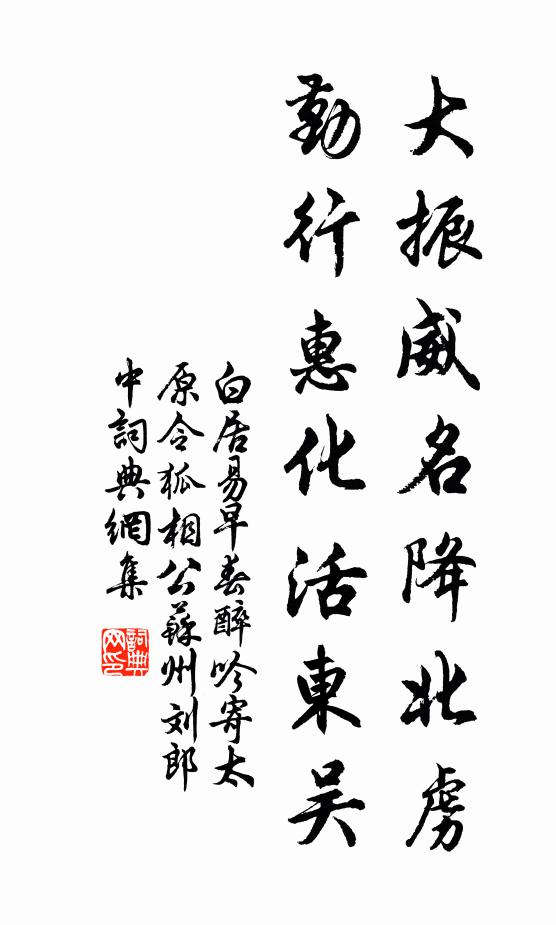 大振威名降北虏
勤行惠化活東吴
白居易早春醉吟寄太
原令狐相公蘇州刘郎
中詞典網集
詞典网印